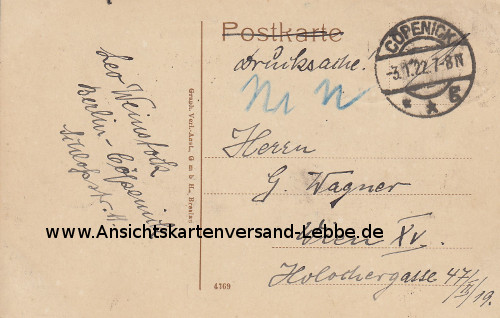 Postkarte
Drucksache!
CÖPENICK
-3.1.22.7-8N
* * 5
Leo Weinstock
Berlin-Cöpenick
Schloßstr. 11
Graph. Verl.-Anst., G m b H., Breslau
Herrn
G. Wagner
Wien XV.
Holochergasse 47/II/19.
www.Ansichtskartenversand-Lebbe.de
4369